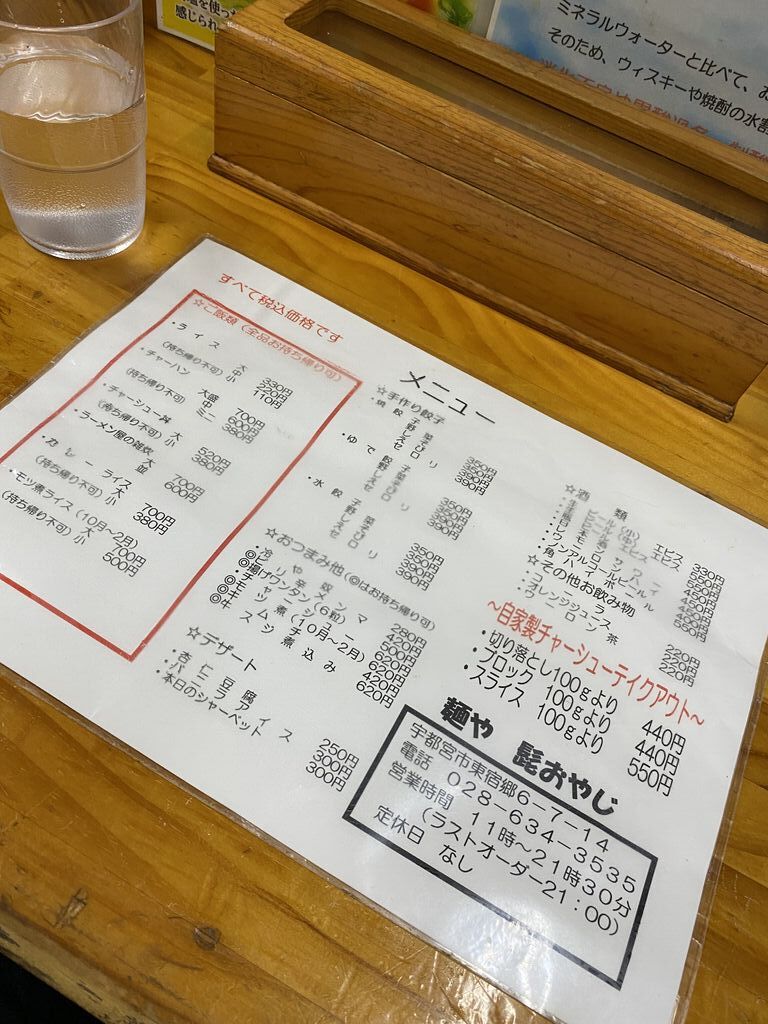 を使っ
感じられ
ミネラルウォーターと比べて、お
そのため、ウィスキーや焼酎の水割
すべて税込価格です
メニュー
☆ご飯類(全品お持ち帰り可)
・ライス 大 330円
(持ち帰り不可) 中 220円
小 110円
・チャーハン 大盛 700円
(持ち帰り不可) 中 600円
ミニ 380円
・チャーシュー丼 大 520円
(持ち帰り不可) 小 380円
・ラーメン屋の雑炊 大 700円
並 600円
・カレーライス 大 700円
(持ち帰り不可) 小 380円
・モツ煮ライス(10月~2月) 大 700円
(持ち帰り不可) 小 500円
☆手作り餃子
・焼餃子 野菜 350円
しそ 350円
えび 390円
・ゆで餃子 野菜 350円
しそ 350円
えび 390円
・水餃子 野菜 350円
しそ 350円
えび 390円
☆おつまみ他(◎はお持ち帰り可)
280円
420円
◎揚げワンタン(6粒) 500円
620円
(10月~2月) 420円
スジ煮込み 620円
☆デザート
・杏仁豆腐 250円
・バニラアイス 300円
・本日のシャーベット 300円
☆酒類
・ノンアルコールビール
・角ハイボール
330円
550円
450円
450円
450円
450円
550円
☆その他お飲み物
・コーラ 220円
・オレンジジュース 220円
・ウーロン茶 220円
~自家製チャーシューテイクアウト~
・切り落とし100gより 440円
・ブロック 100gより 440円
・スライス 100gより 550円
麺や 髭おやじ
宇都宮市東宿郷6-7-14
電話 028-634-3535
営業時間 11時~21時30分
(ラストオーダー21:00)
定休日 なし